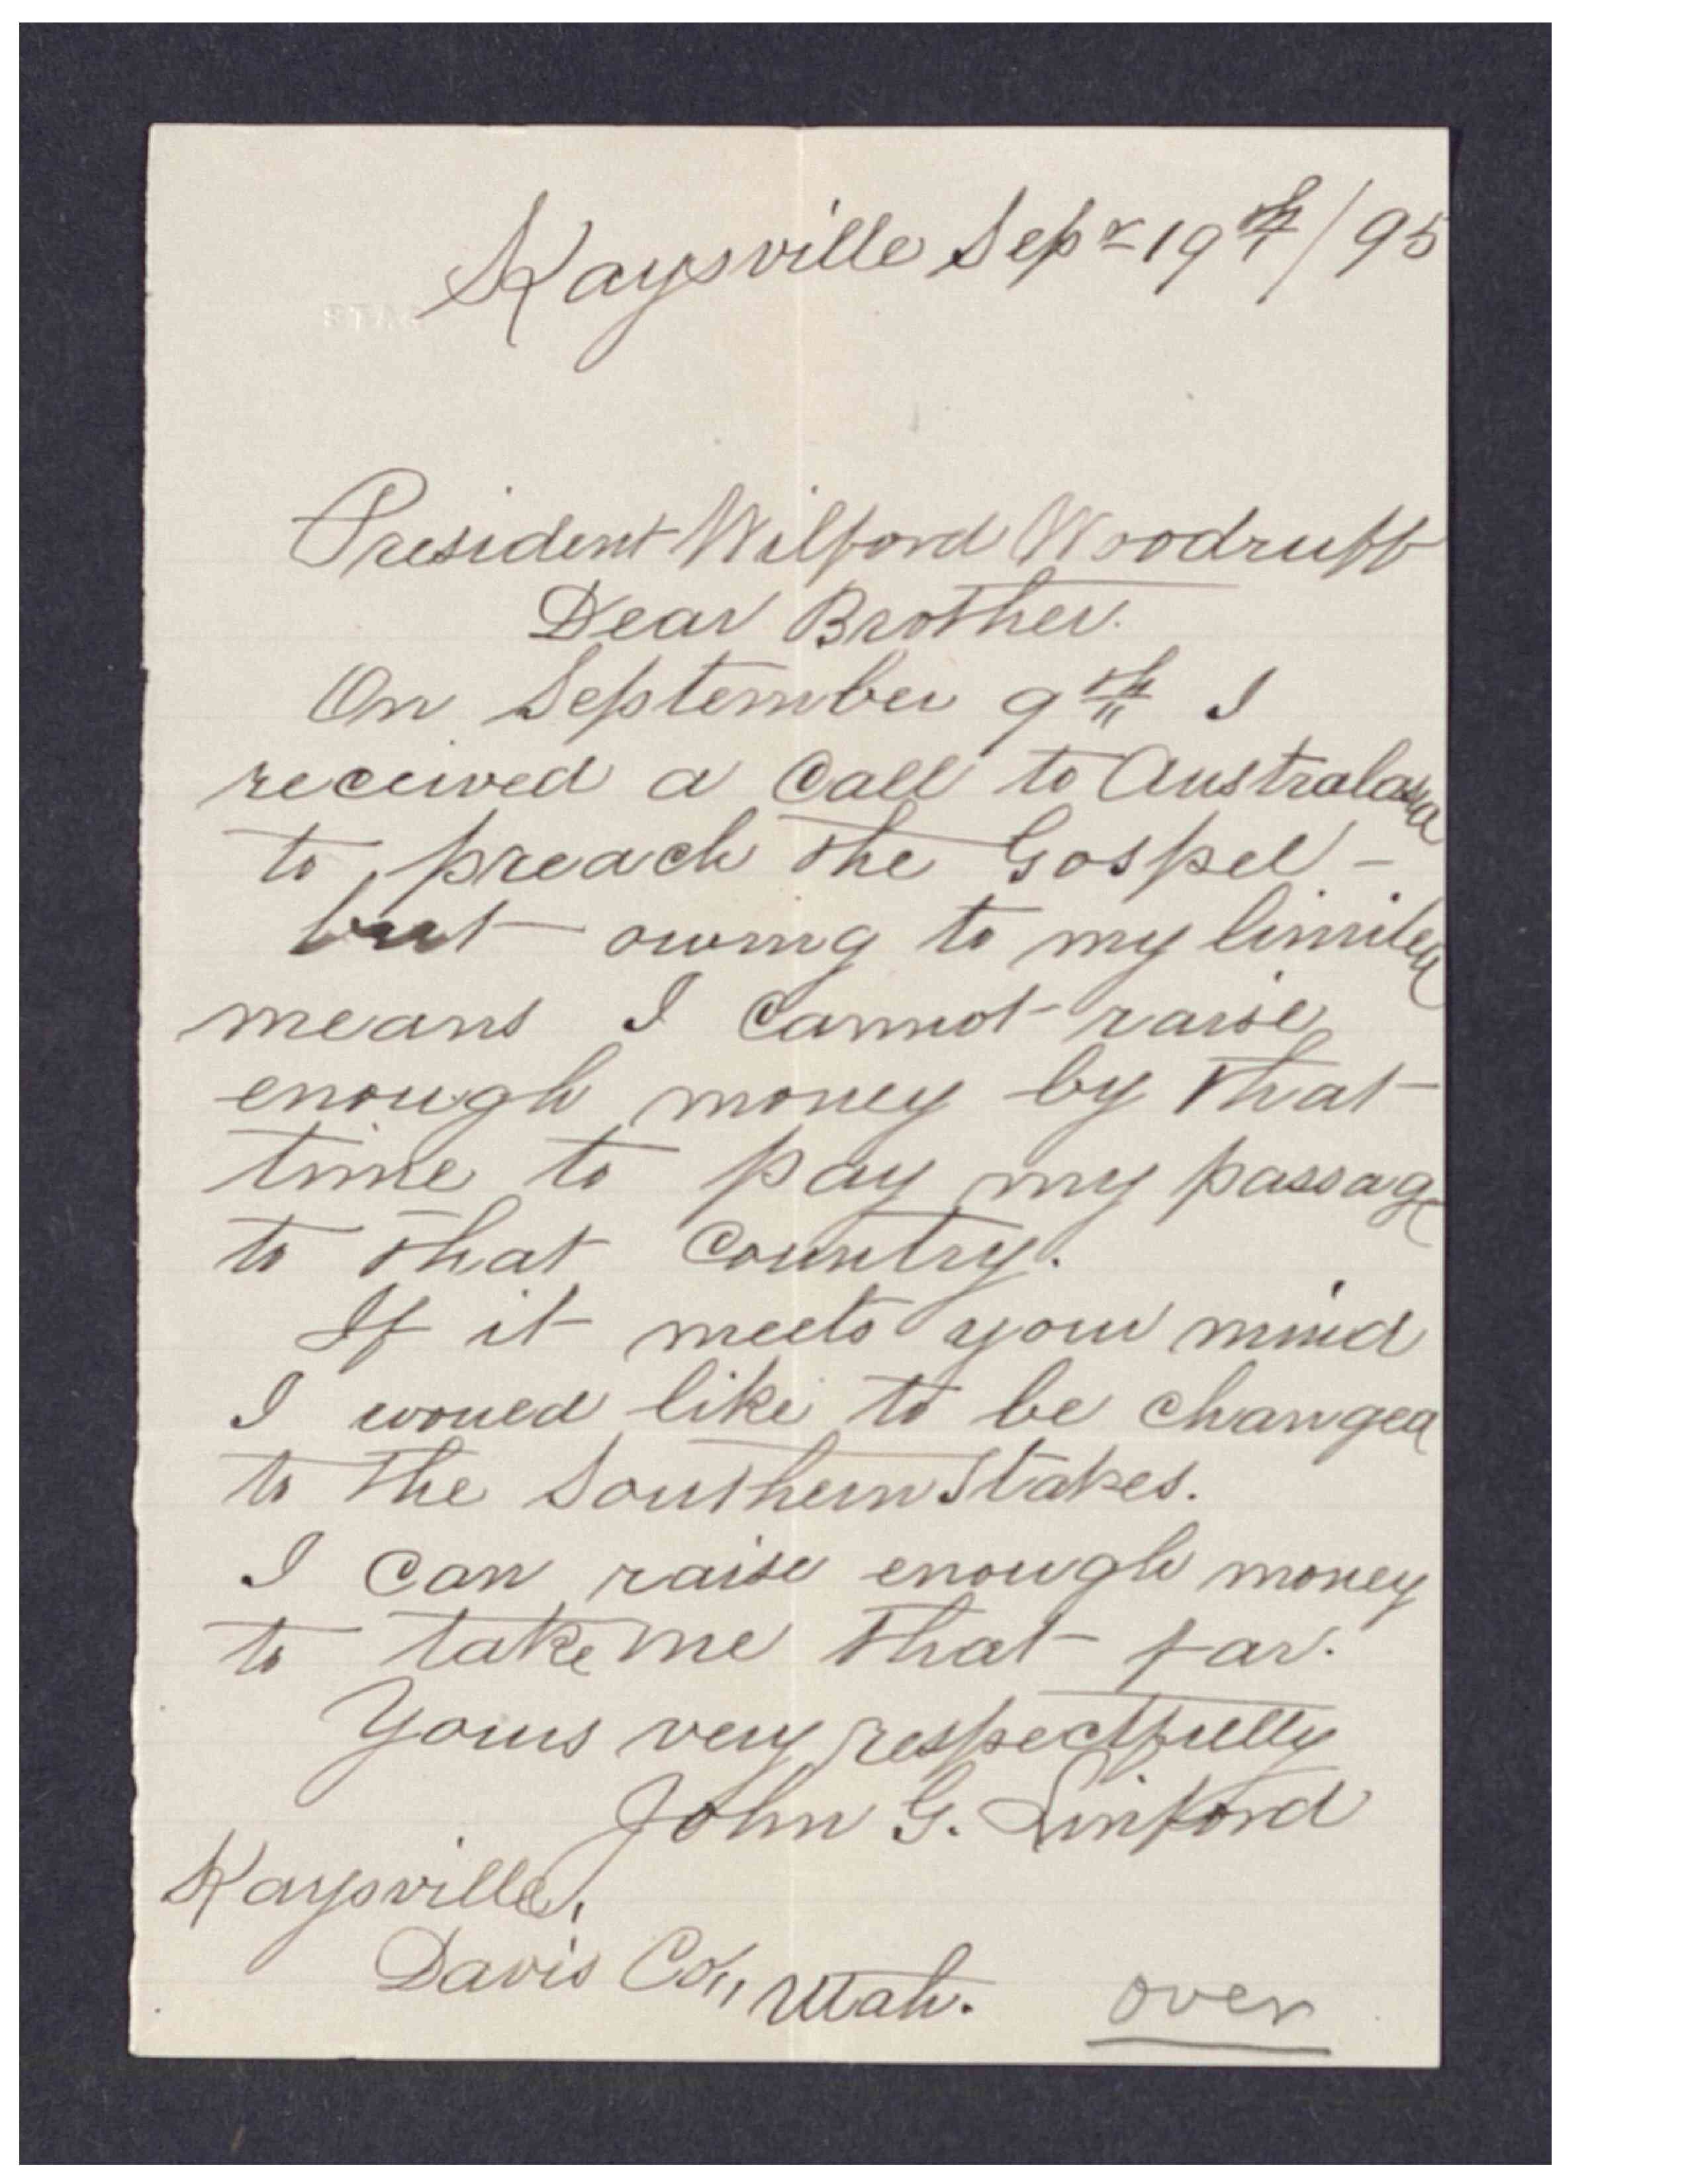 Kaysville Sepr 19th/95
President Wilford Woodruff
Dear Brother.
On September 9th I
received a call to Australasia
to preach the Gospel -
but owing to my limited
means I cannot raise
enough money by that
time to pay my passage
to that country.
If it meets your mind
I woued like to be changed
to the Southern States.
I can raise enough money
to take me that far.
Yours very respectfully
John G. Linford
Kaysville,
Davis Co., Utah.
over